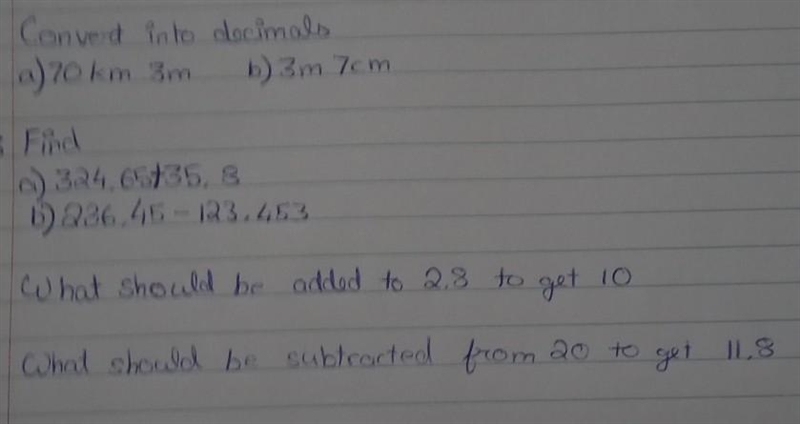 Convert into decimals
a) 70 km 3m b) 3m 7cm
Find
a) 324.65+35.8
b) 236.45 - 123.453
What should be added to 2.8 to get 10
What should be subtracted from 20 to get 11.8